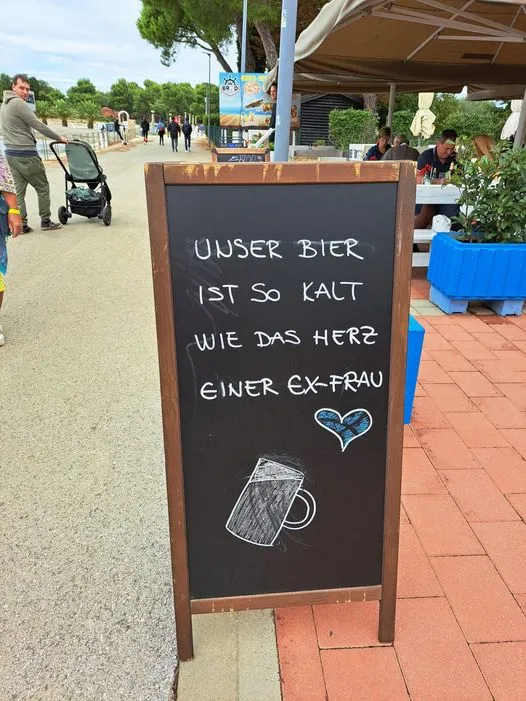 UNSER BIER
IST SO KALT
WIE DAS HERZ
EINER EX-FRAU